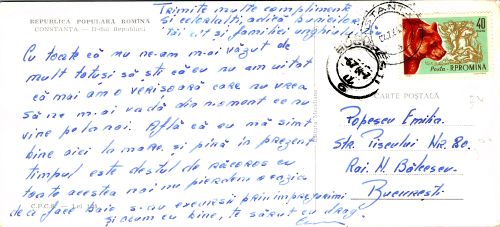 REPUBLICA POPULARA ROMINA
CONSTANȚA — B-dul Republicii
Trimite multe complimente
și celorlalți, adică bunicilor,
tăi cît și familiei unghiului
Cu toate că nu ne-am mai văzut de
mult totuși să știi că eu nu am uitat
că mai am o verișoară care nu vrea
să ne mai vadă din moment ce nu
vine pe la noi. Află că eu mă simt
bine aici la mare, și pînă în prezent
timpul este destul de răcoros cu
toate acestea noi nu pierdem ocazia
de a face baie s-au excursii prin împrejurimi
Și acum cu bine, te sărut cu drag
C.P.C.S.
CONSTANTA
40
Posta R.P.ROMINA
CARTE POSTALĂ
Popescu Emilia.
Str. Piscului Nr. 80.
Rai. N. Bălcescu.
București